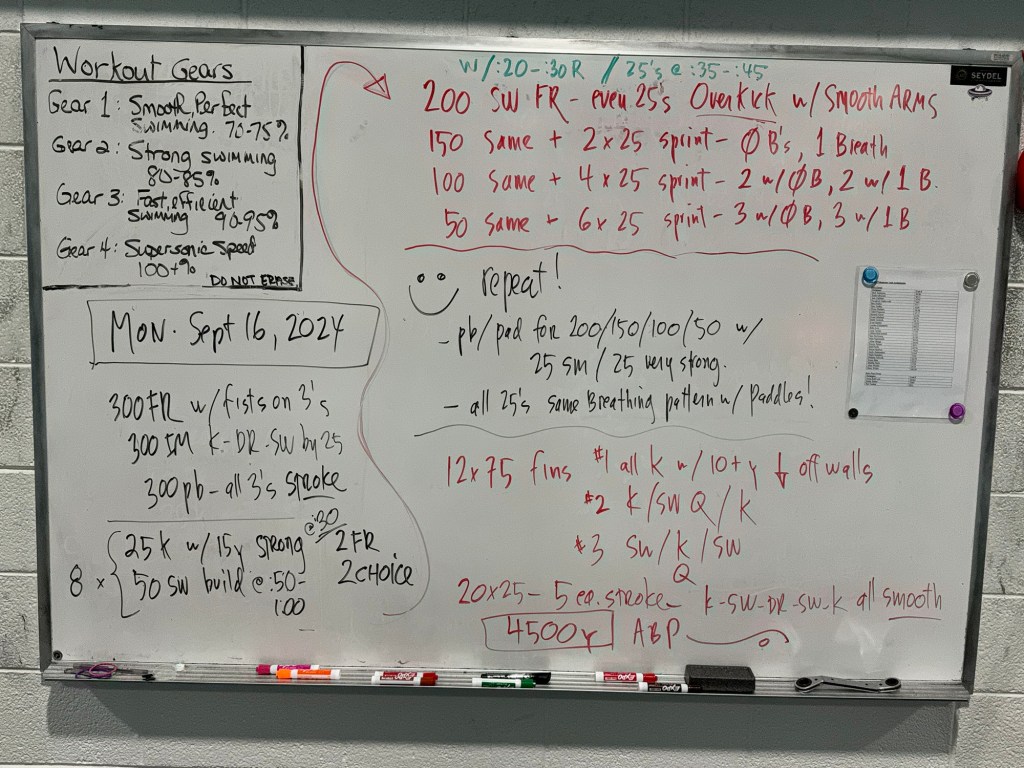 Workout Gears
Gear 1: Smooth, Perfect
swimming. 70-75%
Gear 2: Strong swimming
80-85%
Gear 3: Fast, efficient
swimming 90-95%
Gear 4: Supersonic Speed
100+%
DO NOT ERASE
MON. Sept 16, 2024
300 FR w/fists on 3's
300 IM K-DR-SW by 25
300 pb - all 3's stroke
8 x { 25 K w/ 15y strong @:30
50 SW build @ :50-
1:00
2 FR
2 CHOICE
W/:20-:30 R // 25's @ :35-:45
200 SW FR - even 25's OverKick w/ Smooth ARMS
150 Same + 2x25 sprint - Ø B's, 1 Breath
100 same + 4 x 25 sprint - 2 w/ØB, 2 w/ 1 B.
50 same + 6x25 sprint - 3 w/ØB, 3 w/1B
repeat!
- pb/pad for 200/150/100/50 w/
25 sm / 25 very strong.
- all 25's same Breathing pattern w/ Paddles!
12x75 fins #1 all K w/ 10+y ↓ off walls
#2 K/SW Q/K
#3 SW/K/SW
Q
20x25 - 5 ea. stroke - K-SW-DR-SW-K all smooth
4500y ABP
SEYDEL